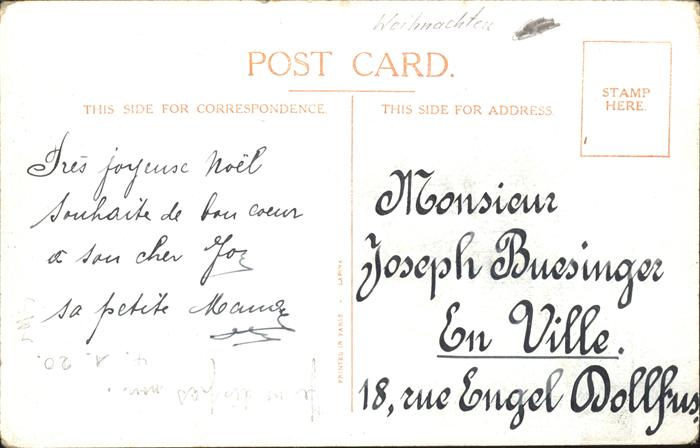 Weihnachten
POST CARD.
THIS SIDE FOR CORRESPONDENCE.
THIS SIDE FOR ADDRESS.
STAMP
HERE.
Très joyeuse Noël
souhaite de bon coeur
a son cher Joz
sa petite
Monsieur
Joseph Buesinger
En Ville.
18, rue Engel Dollfus
PRINTED IN PARIS